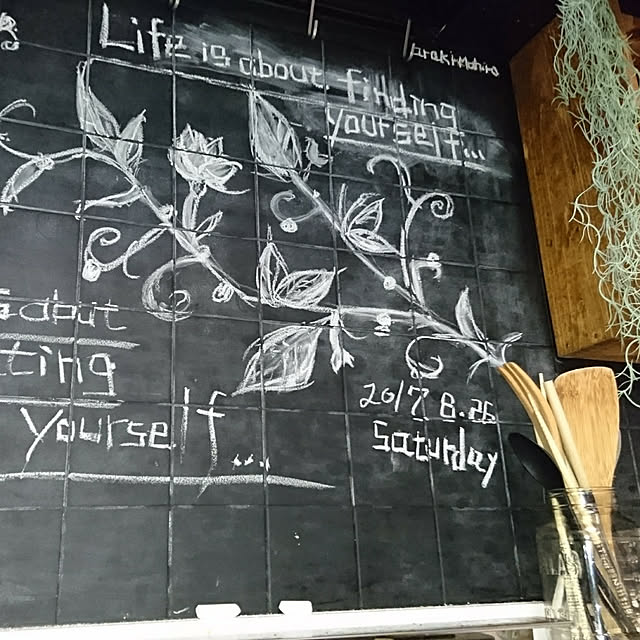 Life is about finding
yourself...
about
ting
yourself...
2017 8.26
Saturday